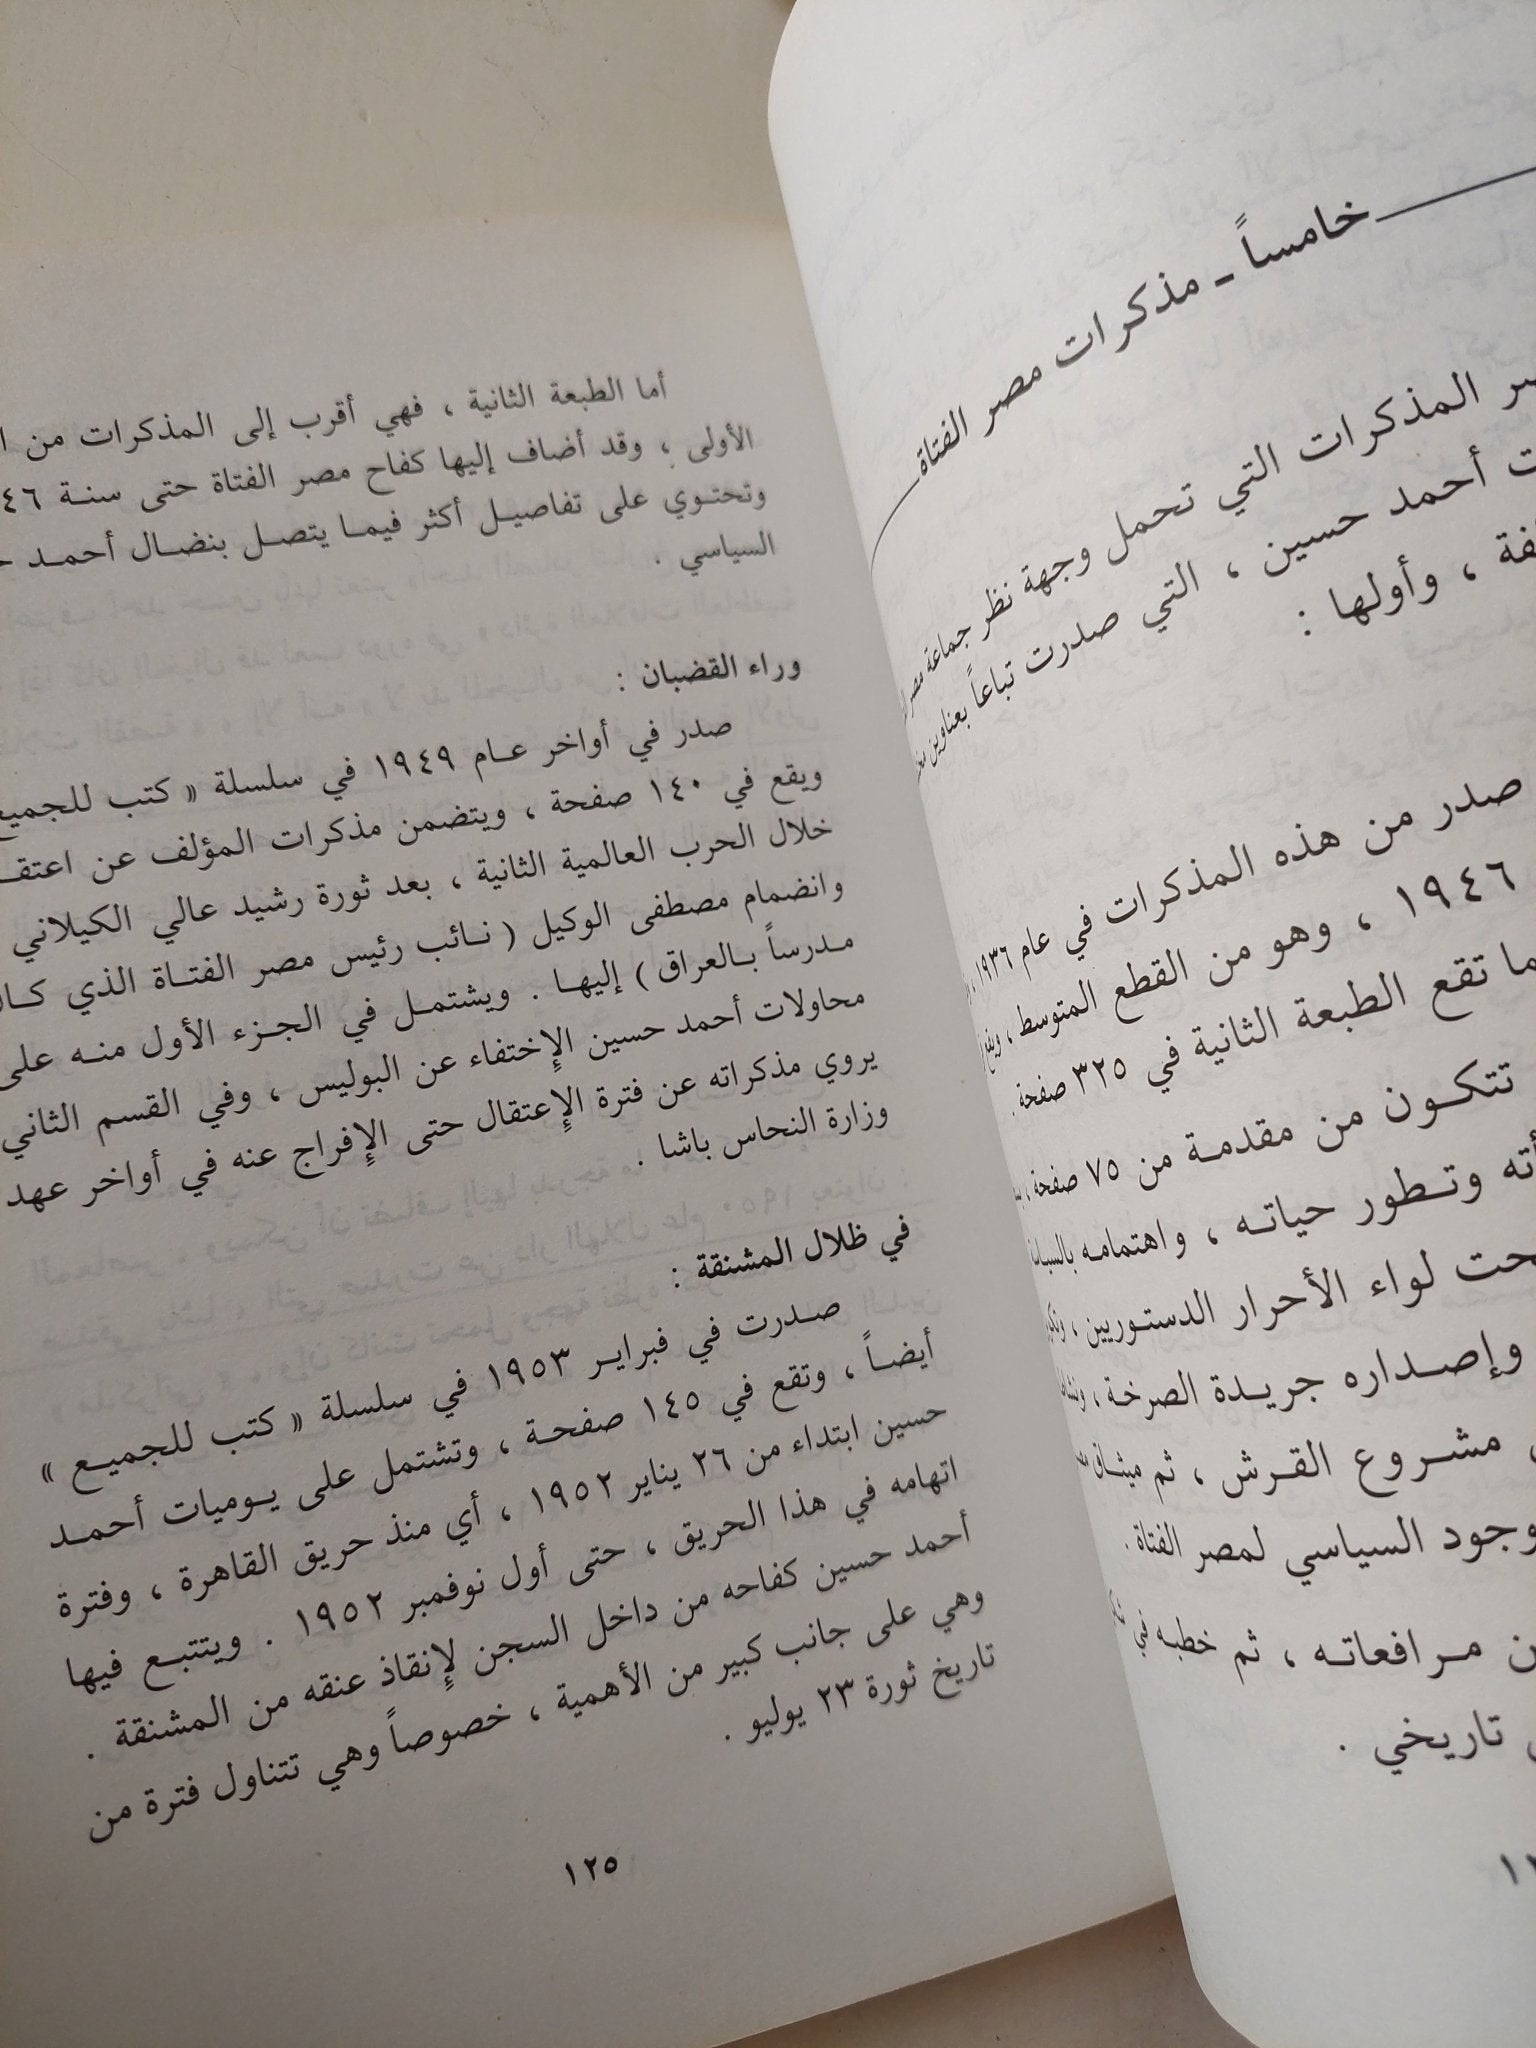 خامساً ـ مذكرات مصر الفتاة
المذكرات التي تحمل وجهة نظر جماعة مصر
أحمد حسين ، التي صدرت تباعاً بعناوين
، وأولها :
صدر من هذه المذكرات في عام ١٩٣٦ ،
١٩٤٦ ، وهو من القطع المتوسط ،
تقع الطبعة الثانية في ٣٢٥ صفحة .
تتكون من مقدمة من ٧٥ صفحة ،
وتطور حياته ، واهتمامه
لواء الأحرار الدستوريين ،
وإصداره جريدة الصرخة ،
مشروع القرش ، ثم ميثاق
السياسي لمصر الفتاة .
مرافعاته ، ثم خطبه في
تاريخي .
أما الطبعة الثانية ، فهي أقرب إلى المذكرات من
الأولى ، وقد أضاف إليها كفاح مصر الفتاة حتى سنة
وتحتوي على تفاصيل أكثر فيما يتصل بنضال أحمد
السياسي .
وراء القضبان :
صدر في أواخر عام ١٩٤٩ في سلسلة « كتب للجميع
ويقع في ١٤٠ صفحة ، ويتضمن مذكرات المؤلف عن
خلال الحرب العالمية الثانية ، بعد ثورة رشيد عالي الكيلاني
وانضمام مصطفى الوكيل ( نائب رئيس مصر الفتاة الذي
مدرساً بالعراق ) إليها . ويشتمل في الجزء الأول منه على
محاولات أحمد حسين الإختفاء عن البوليس ، وفي القسم الثاني
يروي مذكراته عن فترة الإعتقال حتى الإفراج عنه في أواخر عهد
وزارة النحاس باشا .
في ظلال المشنقة :
صدرت في فبراير ١٩٥٣ في سلسلة « كتب للجميع »
أيضاً ، وتقع في ١٤٥ صفحة ، وتشتمل على يوميات أحمد
حسين ابتداء من ٢٦ يناير ١٩٥٢ ، أي منذ حريق القاهرة ، وفترة
اتهامه في هذا الحريق ، حتى أول نوفمبر ١٩٥٢ . ويتتبع فيها
أحمد حسين كفاحه من داخل السجن لإنقاذ عنقه من المشنقة .
وهي على جانب كبير من الأهمية ، خصوصاً وهي تتناول فترة من
تاريخ ثورة ٢٣ يوليو .
١٢٥